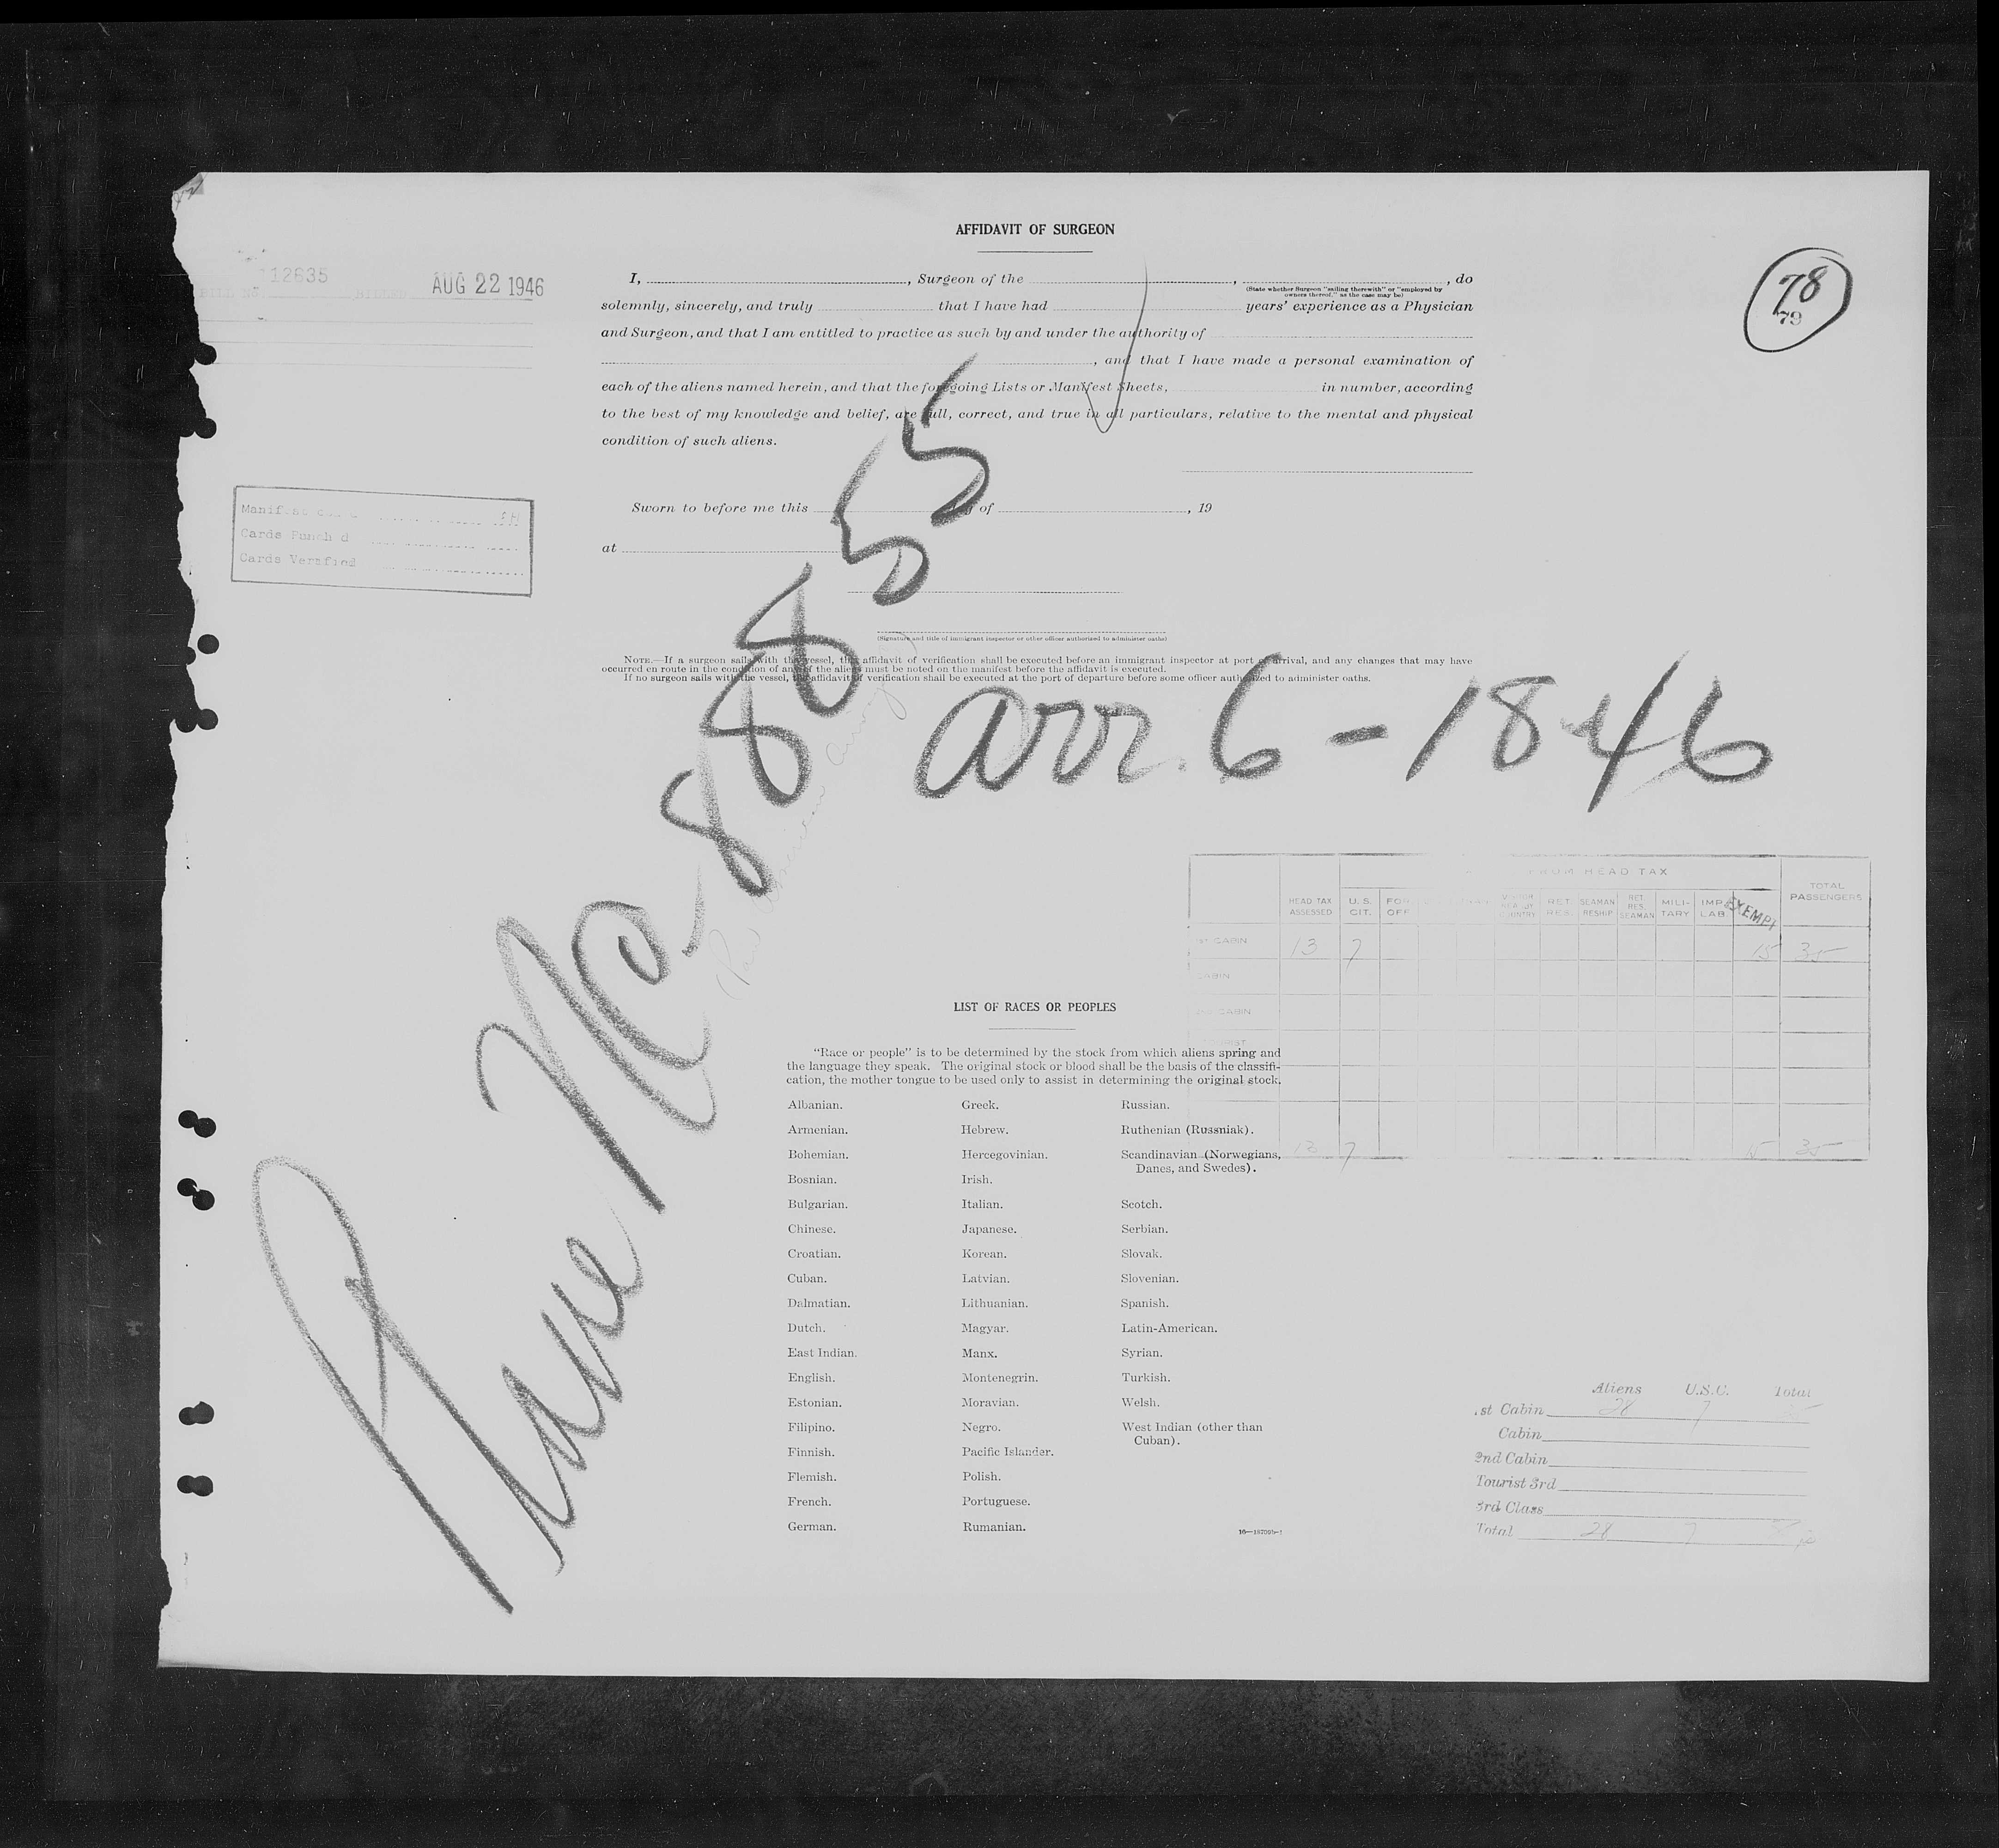 AFFIDAVIT OF SURGEON
112635
BILL NO. BILLED AUG 22 1946
78
79
I, , Surgeon of the , , do
(State whether Surgeon "sailing therewith" or "employed by
owners thereof," as the case may be)
solemnly, sincerely, and truly that I have had years' experience as a Physician
and Surgeon, and that I am entitled to practice as such by and under the authority of
, and that I have made a personal examination of
each of the aliens named herein, and that the foregoing Lists or Manifest Sheets, in number, according
to the best of my knowledge and belief, are full, correct, and true in all particulars, relative to the mental and physical
condition of such aliens.
Manifest
Cards Punch d
Cards Verified
Sworn to before me this day of , 19
at
(Signature and title of immigrant inspector or other officer authorized to administer oaths)
NOTE.—If a surgeon sails with the vessel, this affidavit of verification shall be executed before an immigrant inspector at port of arrival, and any changes that may have
occurred on route in the condition of any of the aliens must be noted on the manifest before the affidavit is executed.
If no surgeon sails with the vessel, the affidavit of verification shall be executed at the port of departure before some officer authorized to administer oaths.
Plane NC-88855
arr. 6-18-46
Pan American Airways
FROM HEAD TAX
HEAD TAX ASSESSED U.S. CIT. FOR. OFF. COUNTRY RET. RES. SEAMAN RESHIP RET. RES. SEAMAN MILI-TARY IMP. LAB. EXEMPT TOTAL PASSENGERS
1st CABIN 13 7 15 35
CABIN
2nd CABIN
TOURIST
13 7 15 35
LIST OF RACES OR PEOPLES
"Race or people" is to be determined by the stock from which aliens spring and
the language they speak. The original stock or blood shall be the basis of the classifi-
cation, the mother tongue to be used only to assist in determining the original stock.
Albanian. Greek. Russian.
Armenian. Hebrew. Ruthenian (Russniak).
Bohemian. Hercegovinian. Scandinavian (Norwegians,
Danes, and Swedes).
Bosnian. Irish.
Bulgarian. Italian. Scotch.
Chinese. Japanese. Serbian.
Croatian. Korean. Slovak.
Cuban. Latvian. Slovenian.
Dalmatian. Lithuanian. Spanish.
Dutch. Magyar. Latin-American.
East Indian. Manx. Syrian.
English. Montenegrin. Turkish.
Estonian. Moravian. Welsh.
Filipino. Negro. West Indian (other than
Cuban).
Finnish. Pacific Islander.
Flemish. Polish.
French. Portuguese.
German. Rumanian.
Aliens U.S.C. Total
1st Cabin 28 7 35
Cabin
2nd Cabin
Tourist 3rd
3rd Class
Total 28 7